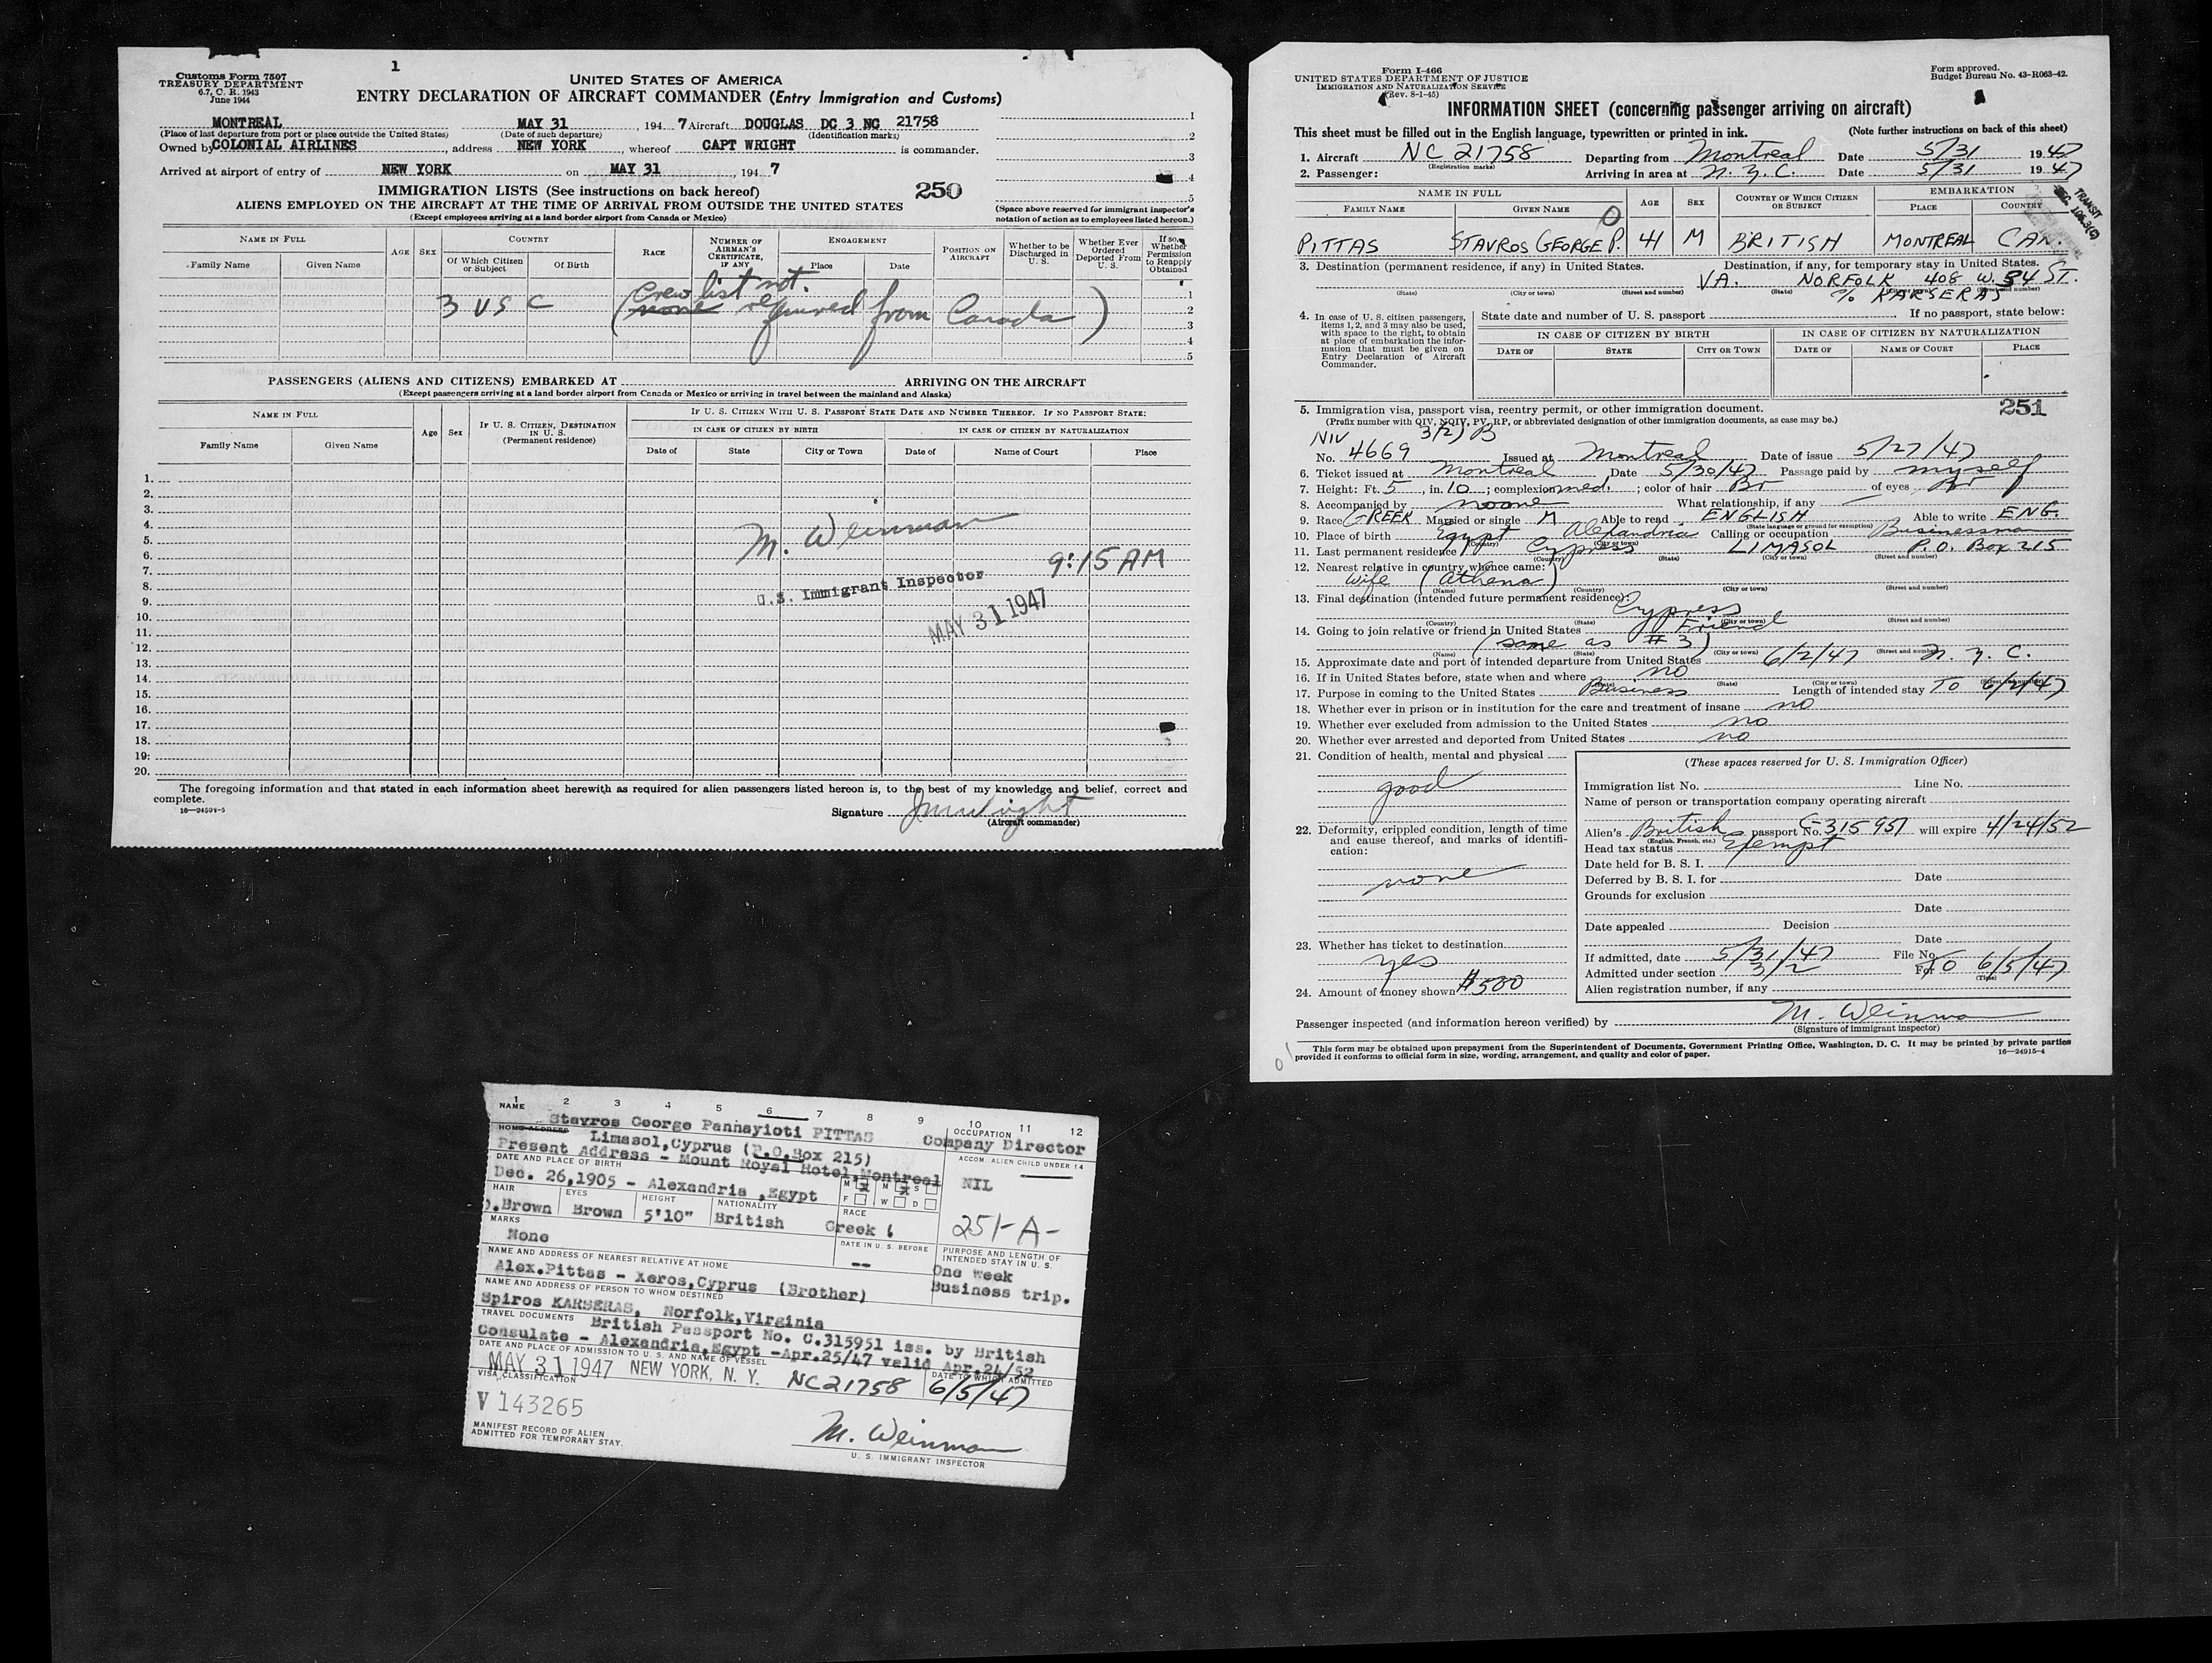 Customs Form 7507
TREASURY DEPARTMENT
6.7, C. R. 1943
June 1944
1
UNITED STATES OF AMERICA
ENTRY DECLARATION OF AIRCRAFT COMMANDER (Entry Immigration and Customs)
MONTREAL MAY 31, 1947 Aircraft DOUGLAS DC 3 NC 21758
(Place of last departure from port or place outside the United States) (Date of such departure) (Identification marks)
Owned by COLONIAL AIRLINES, address NEW YORK, whereof CAPT WRIGHT is commander.
Arrived at airport of entry of NEW YORK on MAY 31, 1947
1
2
3
4
5
IMMIGRATION LISTS (See instructions on back hereof) 250
ALIENS EMPLOYED ON THE AIRCRAFT AT THE TIME OF ARRIVAL FROM OUTSIDE THE UNITED STATES
(Except employees arriving at a land border airport from Canada or Mexico)
(Space above reserved for immigrant inspector's notation of action as to employees listed hereon.)
NAME IN FULL
Family Name Given Name
AGE SEX
COUNTRY
Of Which Citizen or Subject Of Birth
RACE
NUMBER OF AIRMAN'S CERTIFICATE, IF ANY
ENGAGEMENT
Place Date
POSITION ON AIRCRAFT
Whether to be Discharged in U. S.
Whether Ever Ordered Deported From U. S.
If so, Whether Permission to Reapply Obtained
Crew list not
3 USC (none required from Canada)
1
2
3
4
5
PASSENGERS (ALIENS AND CITIZENS) EMBARKED AT ARRIVING ON THE AIRCRAFT
(Except passengers arriving at a land border airport from Canada or Mexico or arriving in travel between the mainland and Alaska)
NAME IN FULL
Family Name Given Name
Age Sex
IF U. S. CITIZEN, DESTINATION IN U. S. (Permanent residence)
IF U. S. CITIZEN WITH U. S. PASSPORT STATE DATE AND NUMBER THEREOF. IF NO PASSPORT STATE:
IN CASE OF CITIZEN BY BIRTH IN CASE OF CITIZEN BY NATURALIZATION
Date of State City or Town Date of Name of Court Place
1.
2.
3.
4.
5.
6.
7.
8.
9.
10.
11.
12.
13.
14.
15.
16.
17.
18.
19.
20.
M. Weinman
9:15 AM
U.S. Immigrant Inspector
MAY 31 1947
The foregoing information and that stated in each information sheet herewith as required for alien passengers listed hereon is, to the best of my knowledge and belief, correct and complete.
16—24594-5
Signature
(Aircraft commander)
Form I-466
UNITED STATES DEPARTMENT OF JUSTICE
IMMIGRATION AND NATURALIZATION SERVICE
(Rev. 8-1-45)
Form approved.
Budget Bureau No. 43-R063-42.
INFORMATION SHEET (concerning passenger arriving on aircraft)
This sheet must be filled out in the English language, typewritten or printed in ink. (Note further instructions on back of this sheet)
1. Aircraft NC 21758 Departing from Montreal Date 5/31 1947
(Registration marks)
2. Passenger: Arriving in area at N. Y. C. Date 5/31 1947
NAME IN FULL
FAMILY NAME GIVEN NAME
AGE SEX
COUNTRY OF WHICH CITIZEN OR SUBJECT
EMBARKATION
PLACE COUNTRY
TRANSIT
PITTAS STAVROS GEORGE P. 41 M BRITISH MONTREAL CAN.
3. Destination (permanent residence, if any) in United States. Destination, if any, for temporary stay in United States.
VA. NORFOLK 408 W. 34 ST.
(State) (City or town) (Street and number) (State) (City or town) (Street and number)
% KARSERAS
4. In case of U. S. citizen passengers, items 1, 2, and 3 may also be used, with space to the right, to obtain at place of embarkation the information that must be given on Entry Declaration of Aircraft Commander.
State date and number of U. S. passport If no passport, state below:
IN CASE OF CITIZEN BY BIRTH IN CASE OF CITIZEN BY NATURALIZATION
DATE OF STATE CITY OR TOWN DATE OF NAME OF COURT PLACE
5. Immigration visa, passport visa, reentry permit, or other immigration document. 251
(Prefix number with QIV, NQIV, PV, RP, or abbreviated designation of other immigration documents, as case may be.)
NIV 3(2) B
No. 4669 Issued at Montreal Date of issue 5/27/47
6. Ticket issued at Montreal Date 5/30/47 Passage paid by myself
7. Height: Ft. 5, in. 10; complexion med.; color of hair Br of eyes Br
8. Accompanied by noone What relationship, if any
9. Race GREEK Married or single M Able to read ENGLISH Able to write ENG.
(State language or ground for exemption)
10. Place of birth Egypt Alexandria Calling or occupation Businessman
(Country) (City or town)
11. Last permanent residence Cypress LIMASOL P.O. Box 215
(Country) (State) (City or town) (Street and number)
12. Nearest relative in country whence came:
Wife (Athena)
(Name) (Country) (City or town) (Street and number)
13. Final destination (intended future permanent residence):
Cypress
(Country) (State) (City or town) (Street and number)
14. Going to join relative or friend in United States Friend
(same as #3)
(Name) (State) (City or town) (Street and number)
15. Approximate date and port of intended departure from United States 6/2/47 N. Y. C.
16. If in United States before, state when and where no
(Date) (State) (City or town) (Street and number)
17. Purpose in coming to the United States Business Length of intended stay To 6/2/47
18. Whether ever in prison or in institution for the care and treatment of insane no
19. Whether ever excluded from admission to the United States no
20. Whether ever arrested and deported from United States no
21. Condition of health, mental and physical
good
22. Deformity, crippled condition, length of time and cause thereof, and marks of identification:
none
23. Whether has ticket to destination
yes
24. Amount of money shown #500
(These spaces reserved for U. S. Immigration Officer)
Immigration list No. Line No.
Name of person or transportation company operating aircraft
Alien's British passport No. C-315951 will expire 4/24/52
(English, French, etc.)
Head tax status Exempt
Date held for B. S. I.
Deferred by B. S. I. for Date
Grounds for exclusion
Date
Date appealed Decision
Date
If admitted, date 5/31/47 File No.
Admitted under section 3/2 For TO 6/5/47
(Time)
Alien registration number, if any
Passenger inspected (and information hereon verified) by M. Weinman
(Signature of immigrant inspector)
This form may be obtained upon prepayment from the Superintendent of Documents, Government Printing Office, Washington, D. C. It may be printed by private parties provided it conforms to official form in size, wording, arrangement, and quality and color of paper.
16—24915-4
1 2 3 4 5 6 7 8 9 10 11 12
NAME Stavros George Panhayioti PITTAS
OCCUPATION Company Director
HOME ADDRESS Limasol, Cyprus (P.O.Box 215)
Present Address - Mount Royal Hotel, Montreal
ACCOM. ALIEN CHILD UNDER 14
NIL
DATE AND PLACE OF BIRTH
Dec. 26,1905 - Alexandria ,Egypt
M X M X S
F W D
HAIR EYES HEIGHT NATIONALITY RACE
D.Brown Brown 5'10" British Greek
251-A-
MARKS
None
DATE IN U. S. BEFORE
--
PURPOSE AND LENGTH OF INTENDED STAY IN U. S.
One week
Business trip.
NAME AND ADDRESS OF NEAREST RELATIVE AT HOME
Alex.Pittas - Xeros,Cyprus (Brother)
NAME AND ADDRESS OF PERSON TO WHOM DESTINED
Spiros KARSERAS, Norfolk,Virginia
TRAVEL DOCUMENTS British Passport No. C.315951 iss. by British
Consulate - Alexandria,Egypt -Apr.25/47 valid Apr.24/52
DATE AND PLACE OF ADMISSION TO U. S. AND NAME OF VESSEL DATE TO WHICH ADMITTED
MAY 31 1947 NEW YORK, N. Y. NC21758 6/5/47
VISA CLASSIFICATION
V 143265
MANIFEST RECORD OF ALIEN
ADMITTED FOR TEMPORARY STAY.
M. Weinman
U. S. IMMIGRANT INSPECTOR